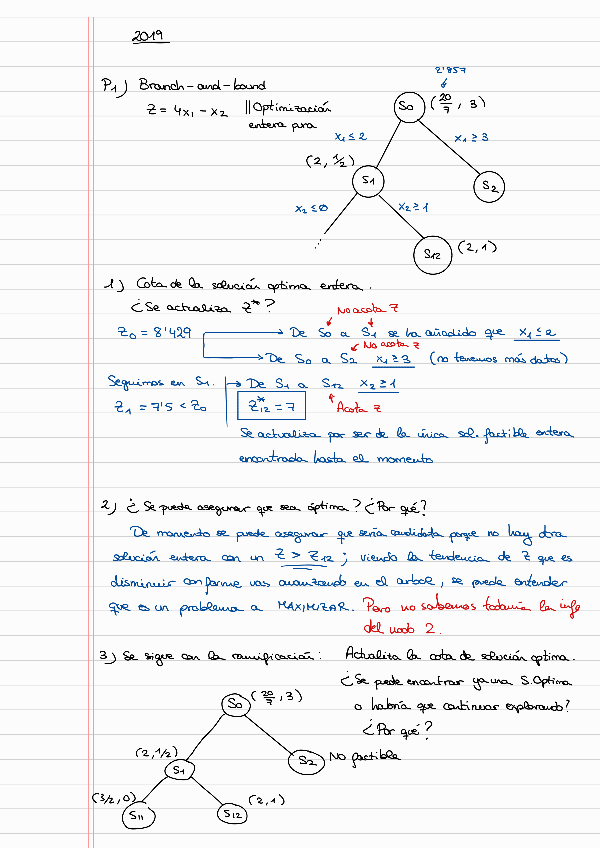 2019
P1) Branch-and-bound
Z = 4x₁ - x₂ || Optimización
entera pura
2'857
S0 (20/7, 3)
x₁ ≤ 2
x₁ ≥ 3
(2, 1/2)
S1
S2
x₂ ≤ 0
x₂ ≥ 1
S12 (2, 1)
1) Cota de la solución optima entera.
¿Se actualiza Z*?
No acota Z
Z₀ = 8'429 → De S0 a S1 se ha añadido que x₁ ≤ 2
No acota Z
→ De S0 a S2 x₁ ≥ 3 (no tenemos más datos)
Seguimos en S1. → De S1 a S12 x₂ ≥ 1
Z₁ = 7'5 < Z₀ Z*₁₂ = 7 Acota Z
Se actualiza por ser de la única sol. factible entera
encontrada hasta el momento
2) ¿Se puede asegurar que sea óptima? ¿Por qué?
De momento se puede asegurar que sería candidata porque no hay otra
solución entera con un Z > Z₁₂; viendo la tendencia de Z que es
disminuir conforme vas avanzando en el arbol, se puede entender
que es un problema a MAXIMIZAR. Pero no sabemos todavía la info
del nodo 2.
3) Se sigue con la ramificación: Actualiza la cota de solución optima.
¿Se puede encontrar ya una S. Optima
o habría que continuar explorando?
¿Por qué?
S0 (20/7, 3)
(2, 1/2)
S1
S2 No factible
(3/2, 0)
S11
S12 (2, 1)